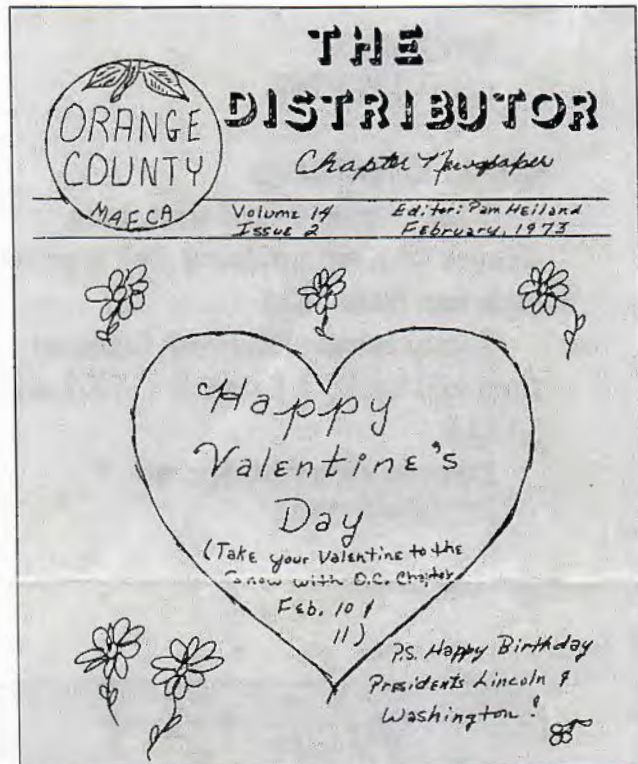 THE
DISTRIBUTOR
Chapter Newspaper
ORANGE
COUNTY
MAFCA
Volume 14
Issue 2
Editor: Pam Heiland
February, 1973
Happy
Valentine's
Day
(Take your Valentine to the
Snow with O.C. Chapter
Feb. 10 &
11)
P.S. Happy Birthday
Presidents Lincoln &
Washington!